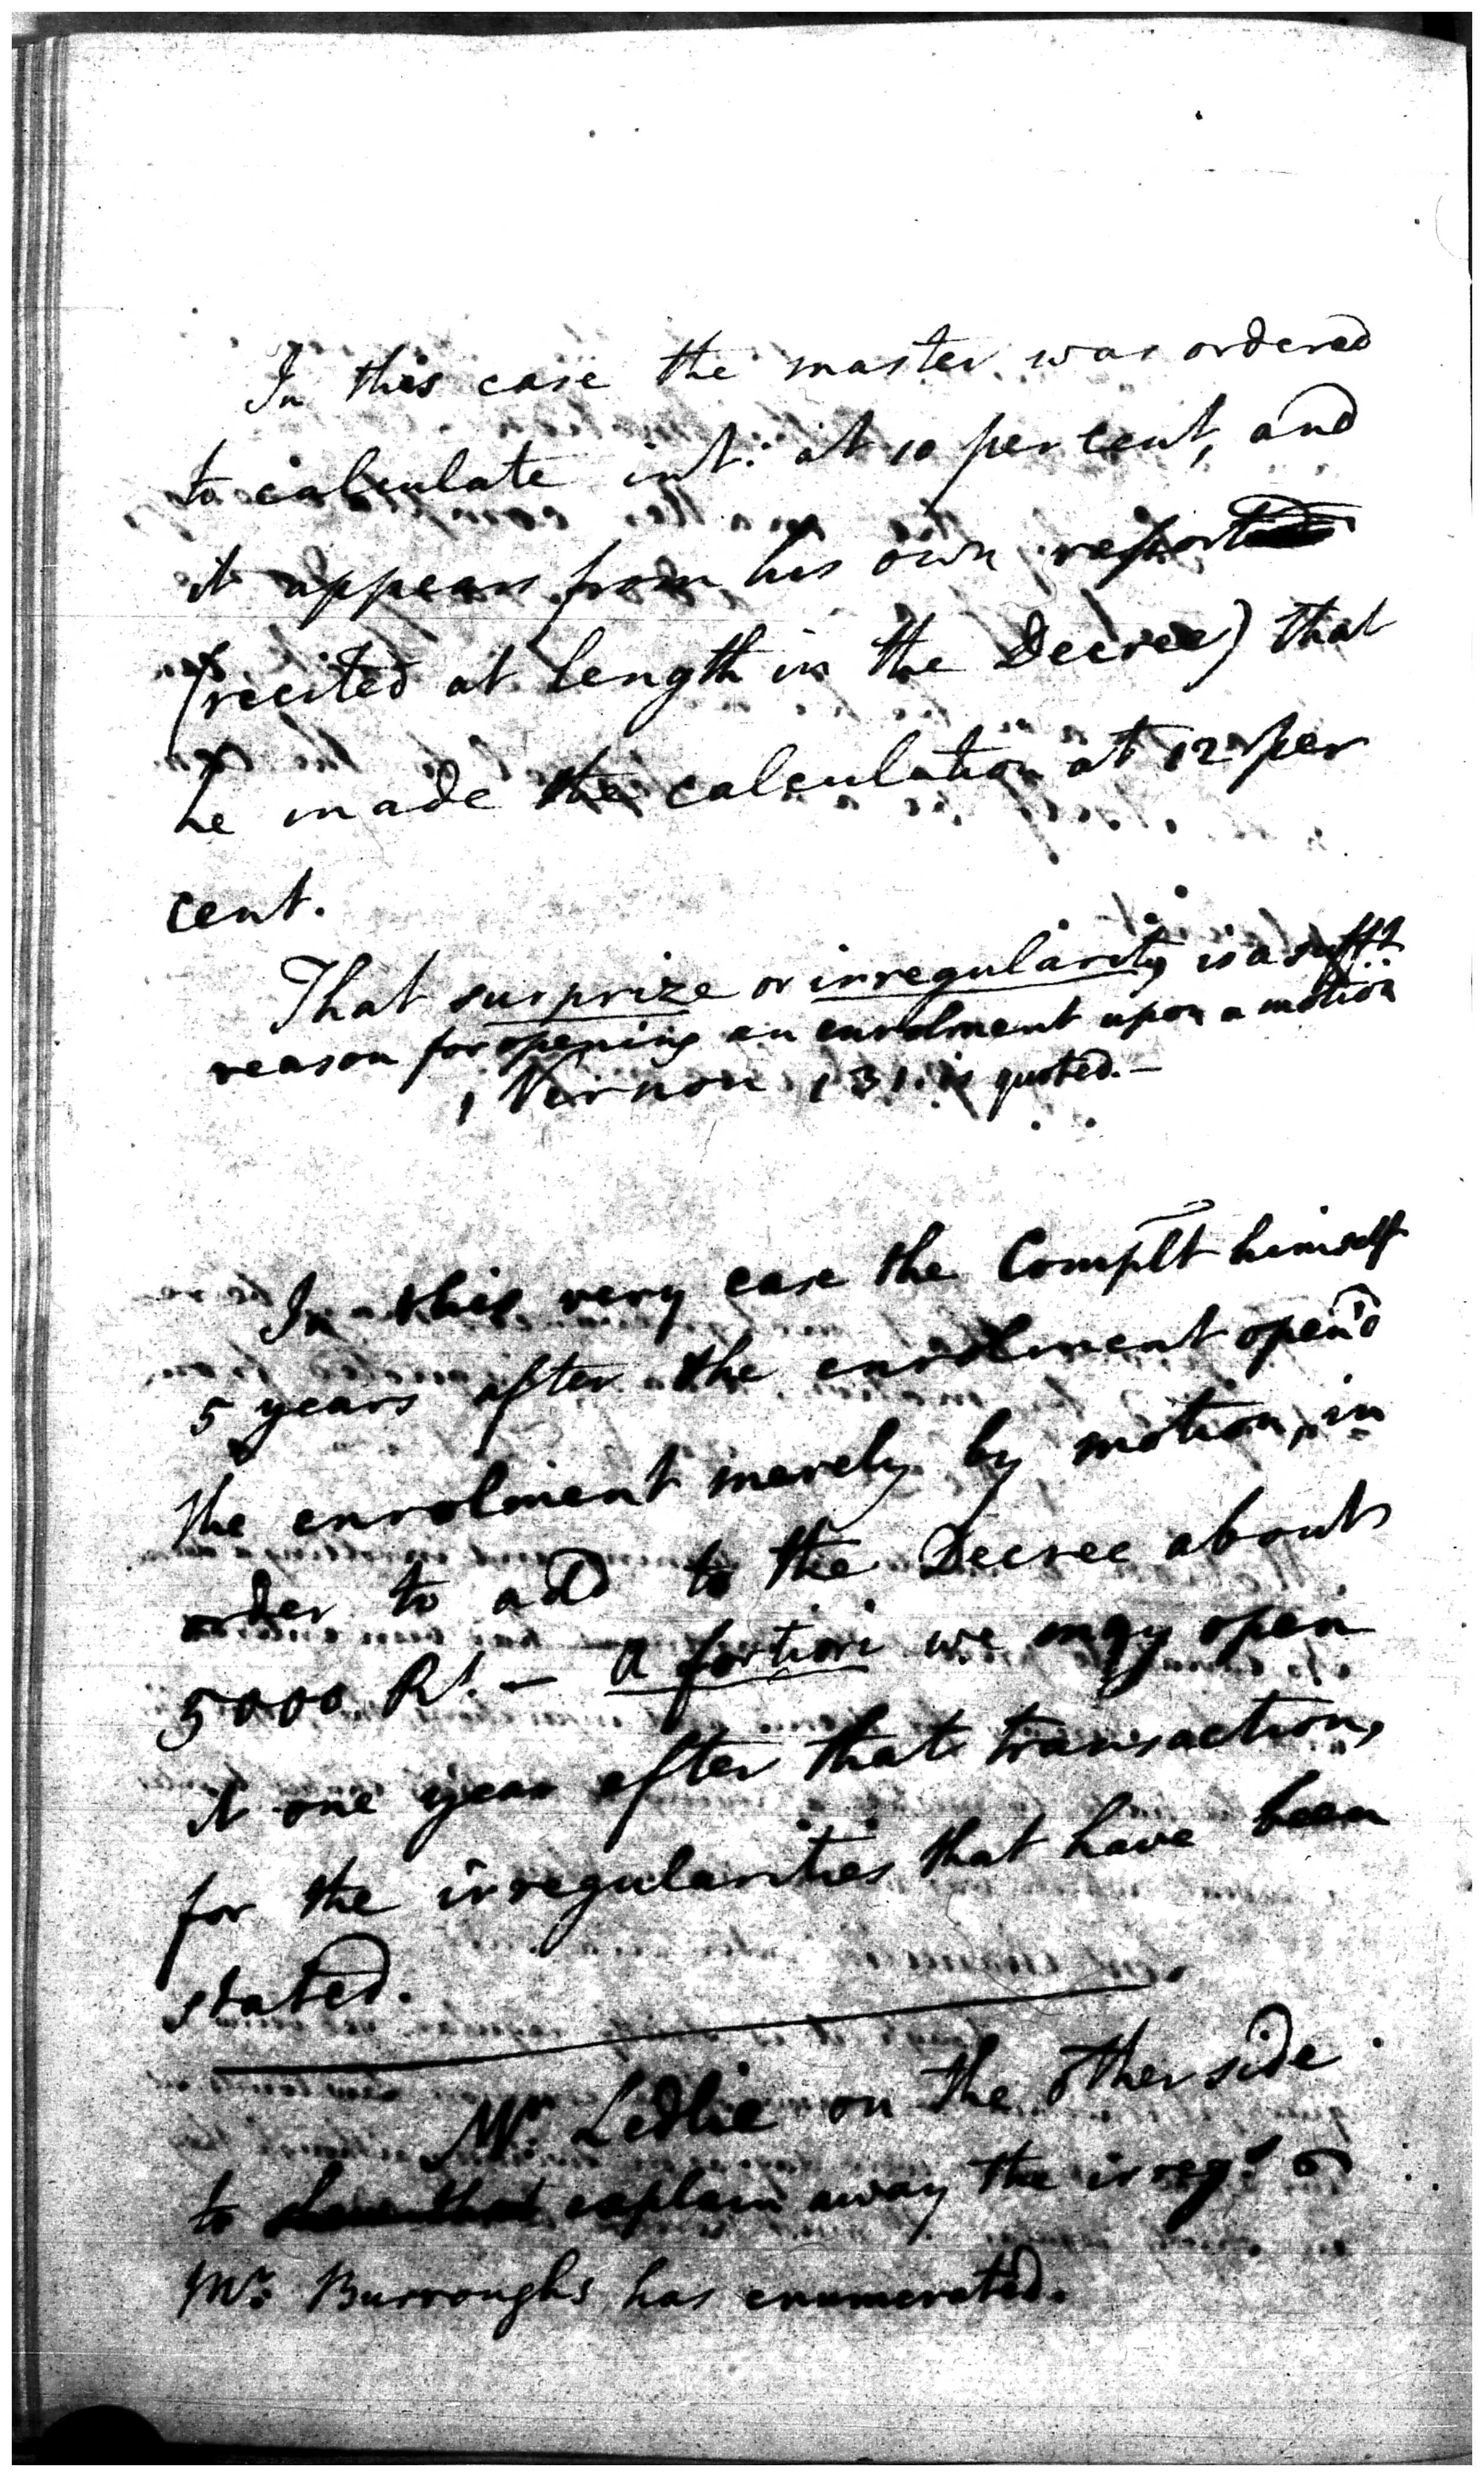 In this case the master was ordered
to calculate int: at 10 per cent, and
it appears from his own report
(recited at length in the Decree) that
he made the calculation at 12 per
cent.
That surprize or irregularity is a sufft
reason for opening an enrolment upon a motion
1 Vernon 131. is quoted.—
In this very case the Complt himself
5 years after the enrolment open'd
the enrolment merely by motion, in
order to add to the Decree about
5000 Rs. — a fortiori we may open
it one year after that transaction,
for the irregularities that have been
stated.
Mr. Ledlie on the other side
to explain away the irregs
Mr. Burroughs has enumerated.